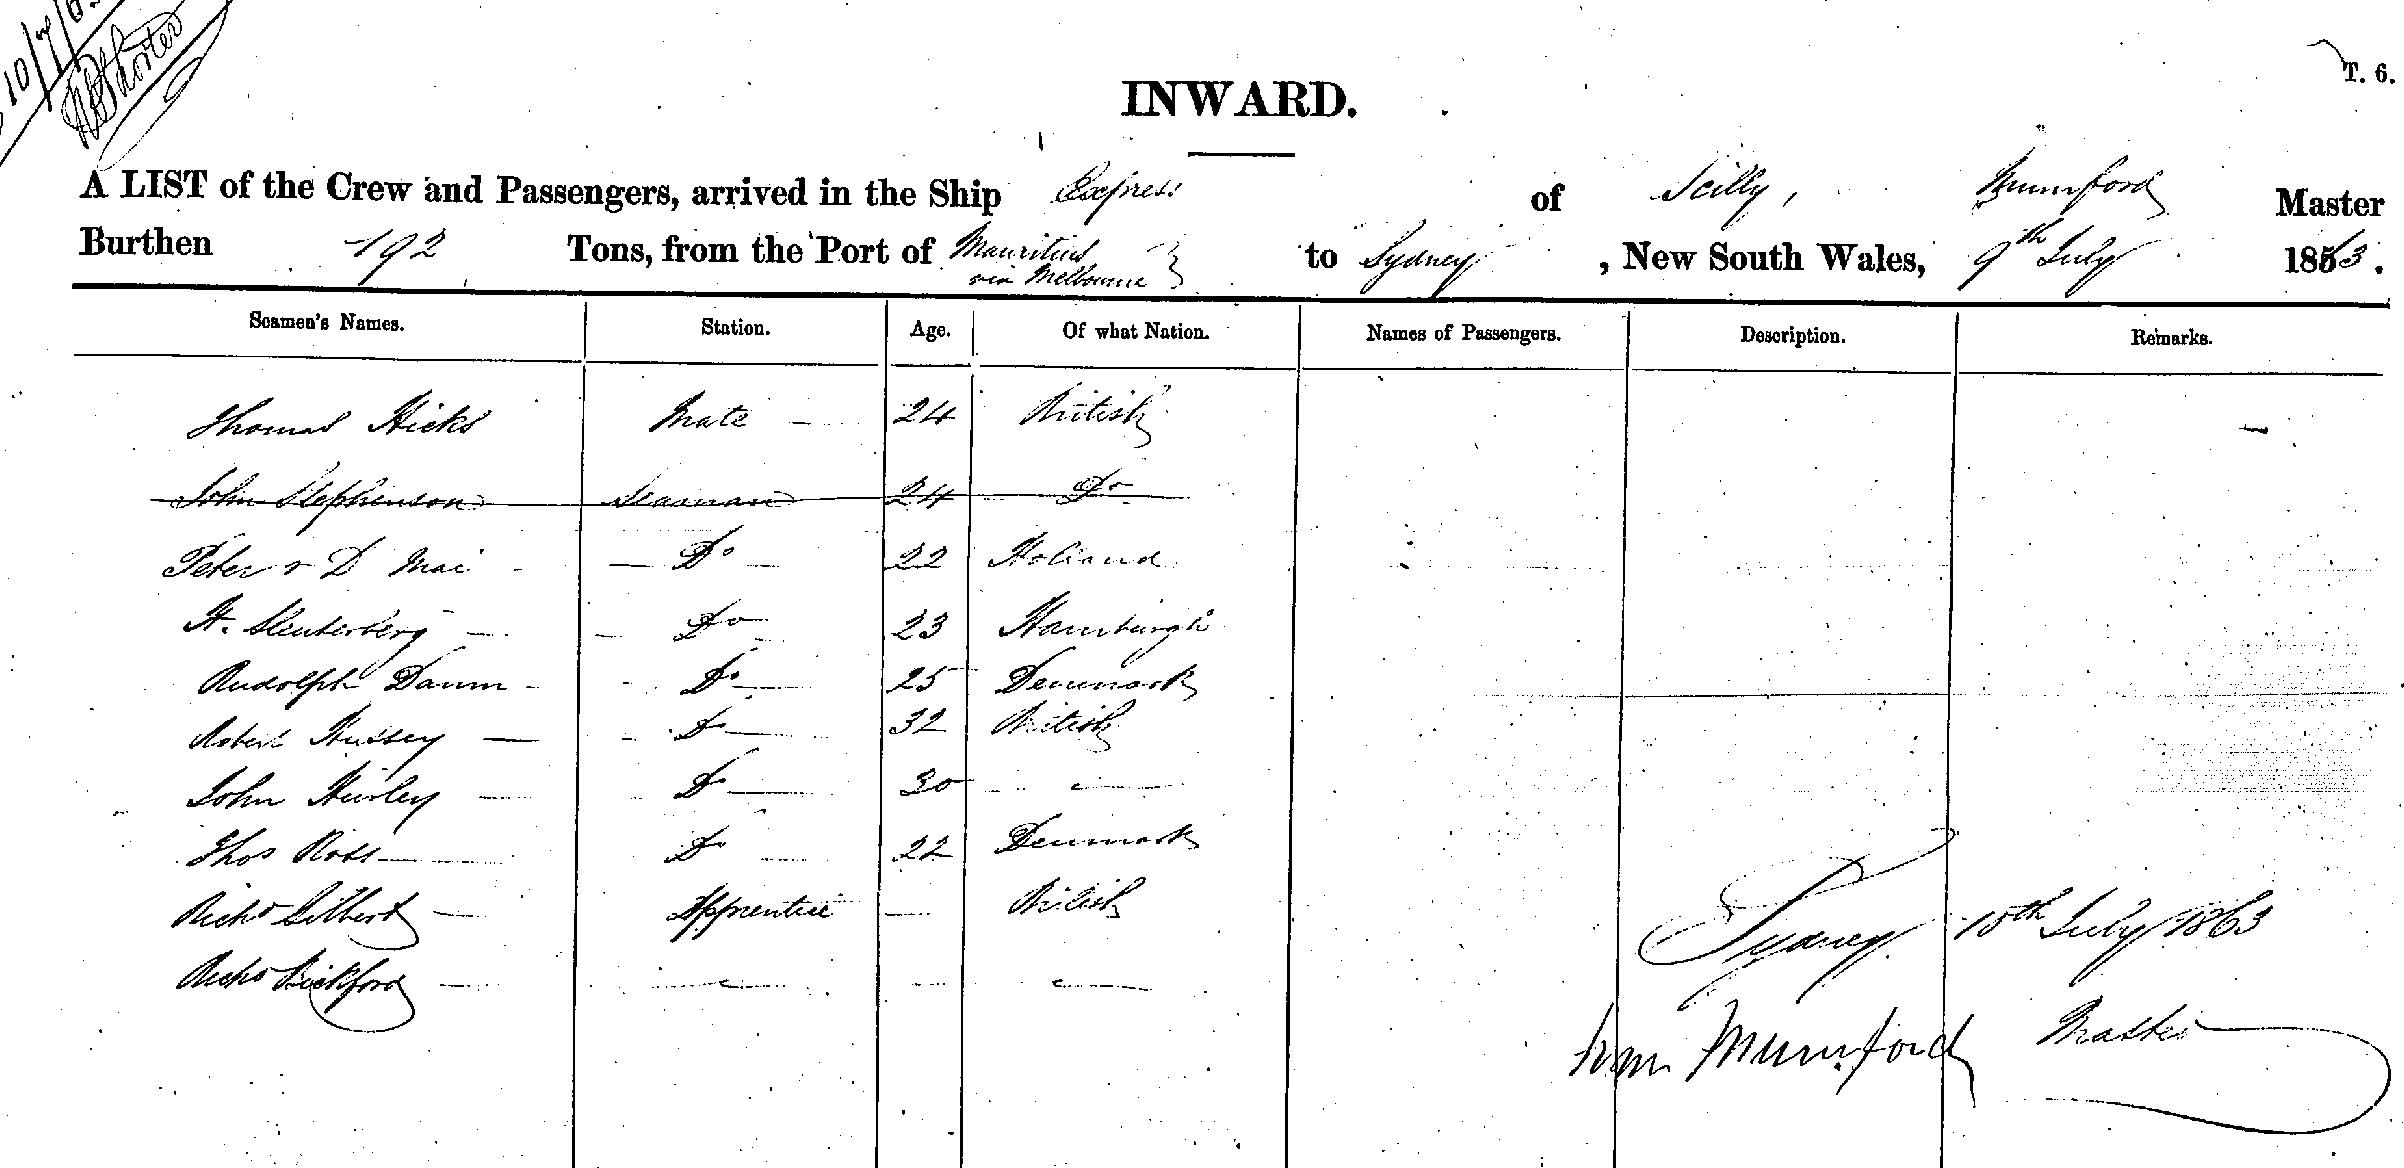 10/7/63
INWARD.
T. 6.
A LIST of the Crew and Passengers, arrived in the Ship Express of Scilly, Mumford Master
Burthen 192 Tons, from the Port of Mauritius via Melbourne to Sydney, New South Wales, 9th July 1863.
Seamen's Names. Station. Age. Of what Nation. Names of Passengers. Description. Remarks.
Thomas Hicks Mate 24 British
John Stephenson Seaman 24 Do
Peter D Mai Do 22 Holland
H. Do 23 Hamburgh
Rudolph Damm Do 25 Denmark
Robert Hussey Do 32 British
John Hurley Do 30 "
Thos Ross Do 22 Denmark
Richd Gilbert Apprentice British
Richd Bickford " "
Sydney 10th July 1863
Wm Mumford Master